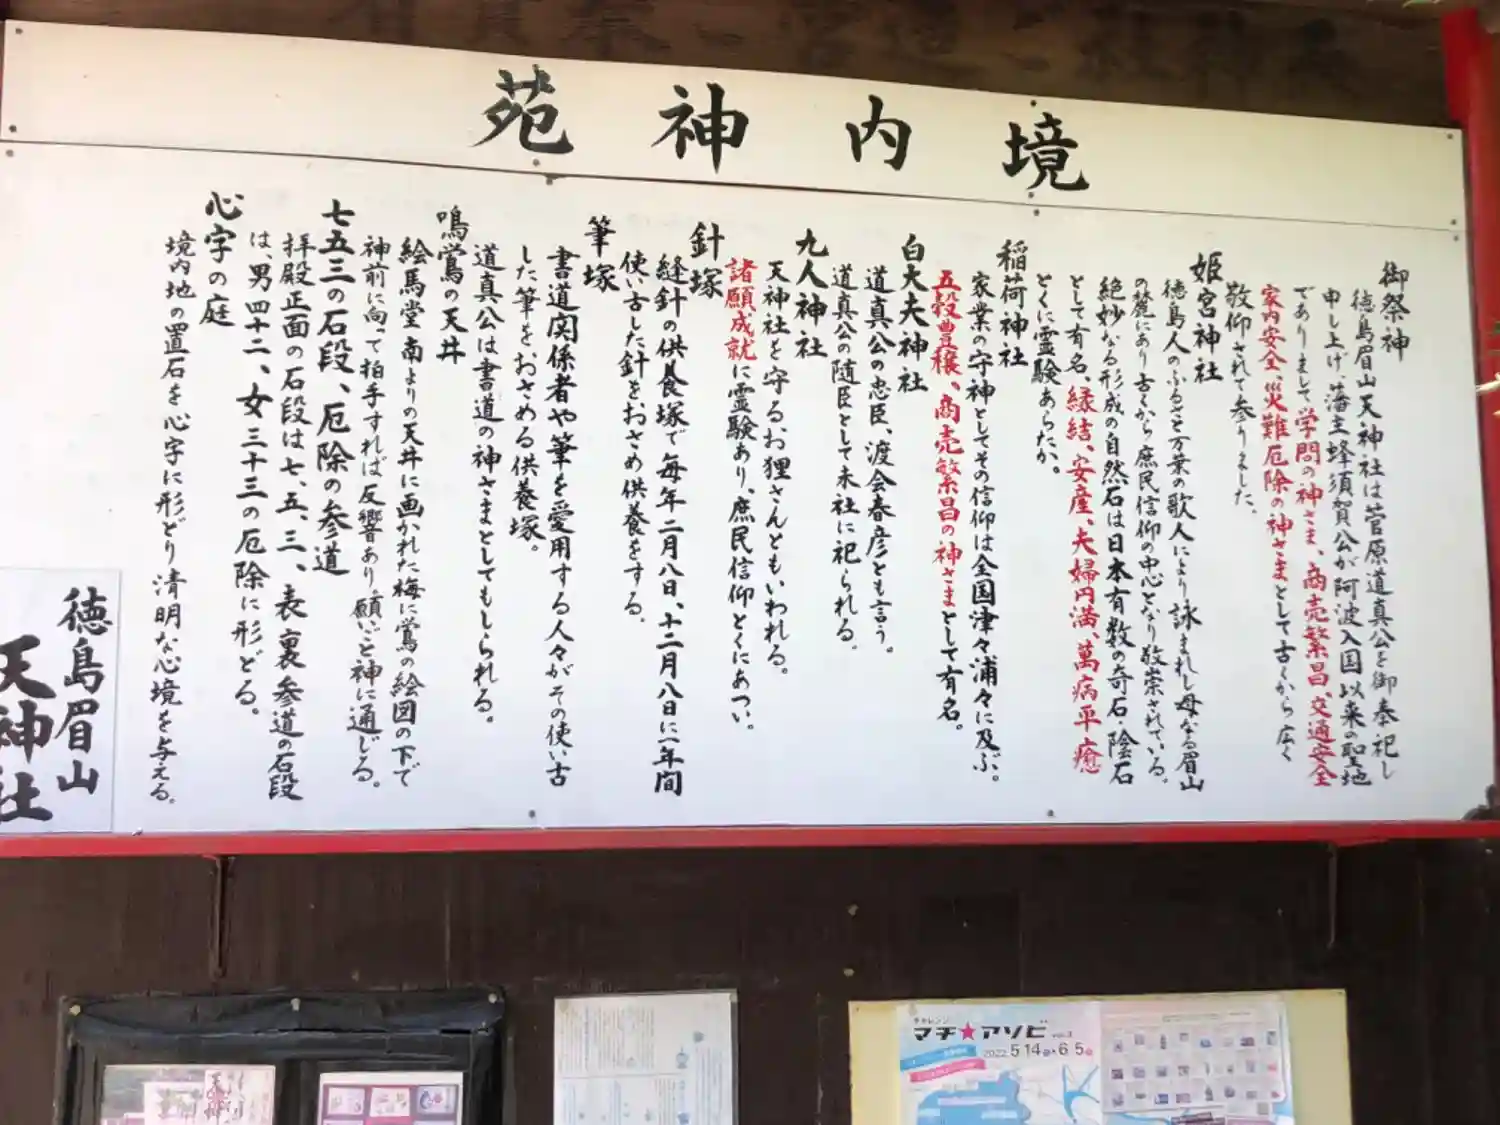 境内神苑
御祭神
徳島眉山天神社は菅原道真公を御奉祀し
申し上げ、藩主蜂須賀公が阿波入国以来の聖地
でありまして学問の神さま、商売繁昌、交通安全
家内安全、災難厄除の神さまとして古くから広く
敬仰されて参りました。
姫宮神社
徳島人のふるさと万葉の歌人により詠まれし母なる眉山
の麓にあり古くから庶民信仰の中心となり敬崇されている。
絶妙なる形成の自然石は日本有数の奇石・陰石
として有名。縁結、安産、夫婦円満、萬病平癒
とくに霊験あらたか。
稲荷神社
家業の守神としてその信仰は全国津々浦々に及ぶ。
五穀豊穣、商売繁昌の神さまとして有名。
白大夫神社
道真公の忠臣、渡会春彦とも言う。
道真公の随臣として末社に祀られる。
九人神社
天神社を守るお狸さんともいわれる。
諸願成就に霊験あり、庶民信仰とくにあつい。
針塚
縫針の供養塚で毎年二月八日、十二月八日に一年間
使い古した針をおさめ供養をする。
筆塚
書道関係者や筆を愛用する人々がその使い古
した筆をおさめる供養塚。
道真公は書道の神さまとしてもしられる。
鳴鴬の天井
絵馬堂南よりの天井に画かれた梅に鴬の絵図の下で
神前に向って拍手すれば反響あり。願いごと神に通じる。
七五三の石段、厄除の参道
拝殿正面の石段は七、五、三、表裏参道の石段
は、男四十二、女三十三の厄除に形どる。
心字の庭
境内地の置石を心字に形どり清明な心境を与える。
徳島眉山
天神社
マチ★アソビ
2022.5.14 6.5